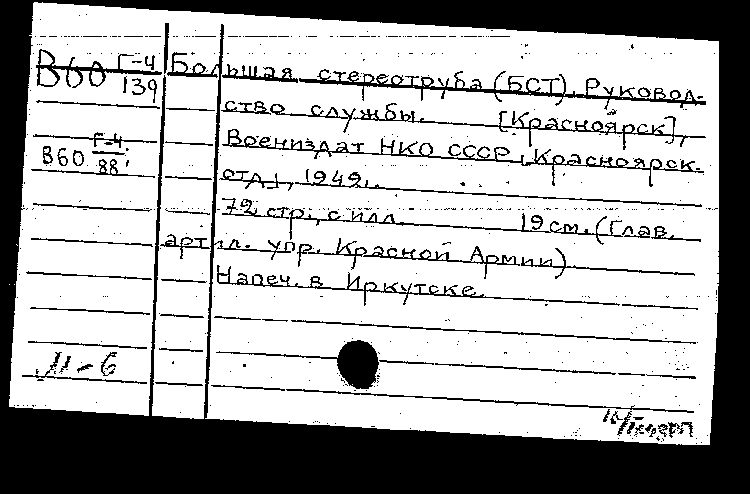 В60 Г-4/139 Большая стереотруба (БСТ). Руковод-
ство службы. [Красноярск],
В60 Г-4/88 Воениздат НКО СССР, Красноярск.
отд., 1942.
72 стр., с илл. 19 см. (Глав.
артил. упр. Красной Армии)
Напеч. в Иркутске.
М-6